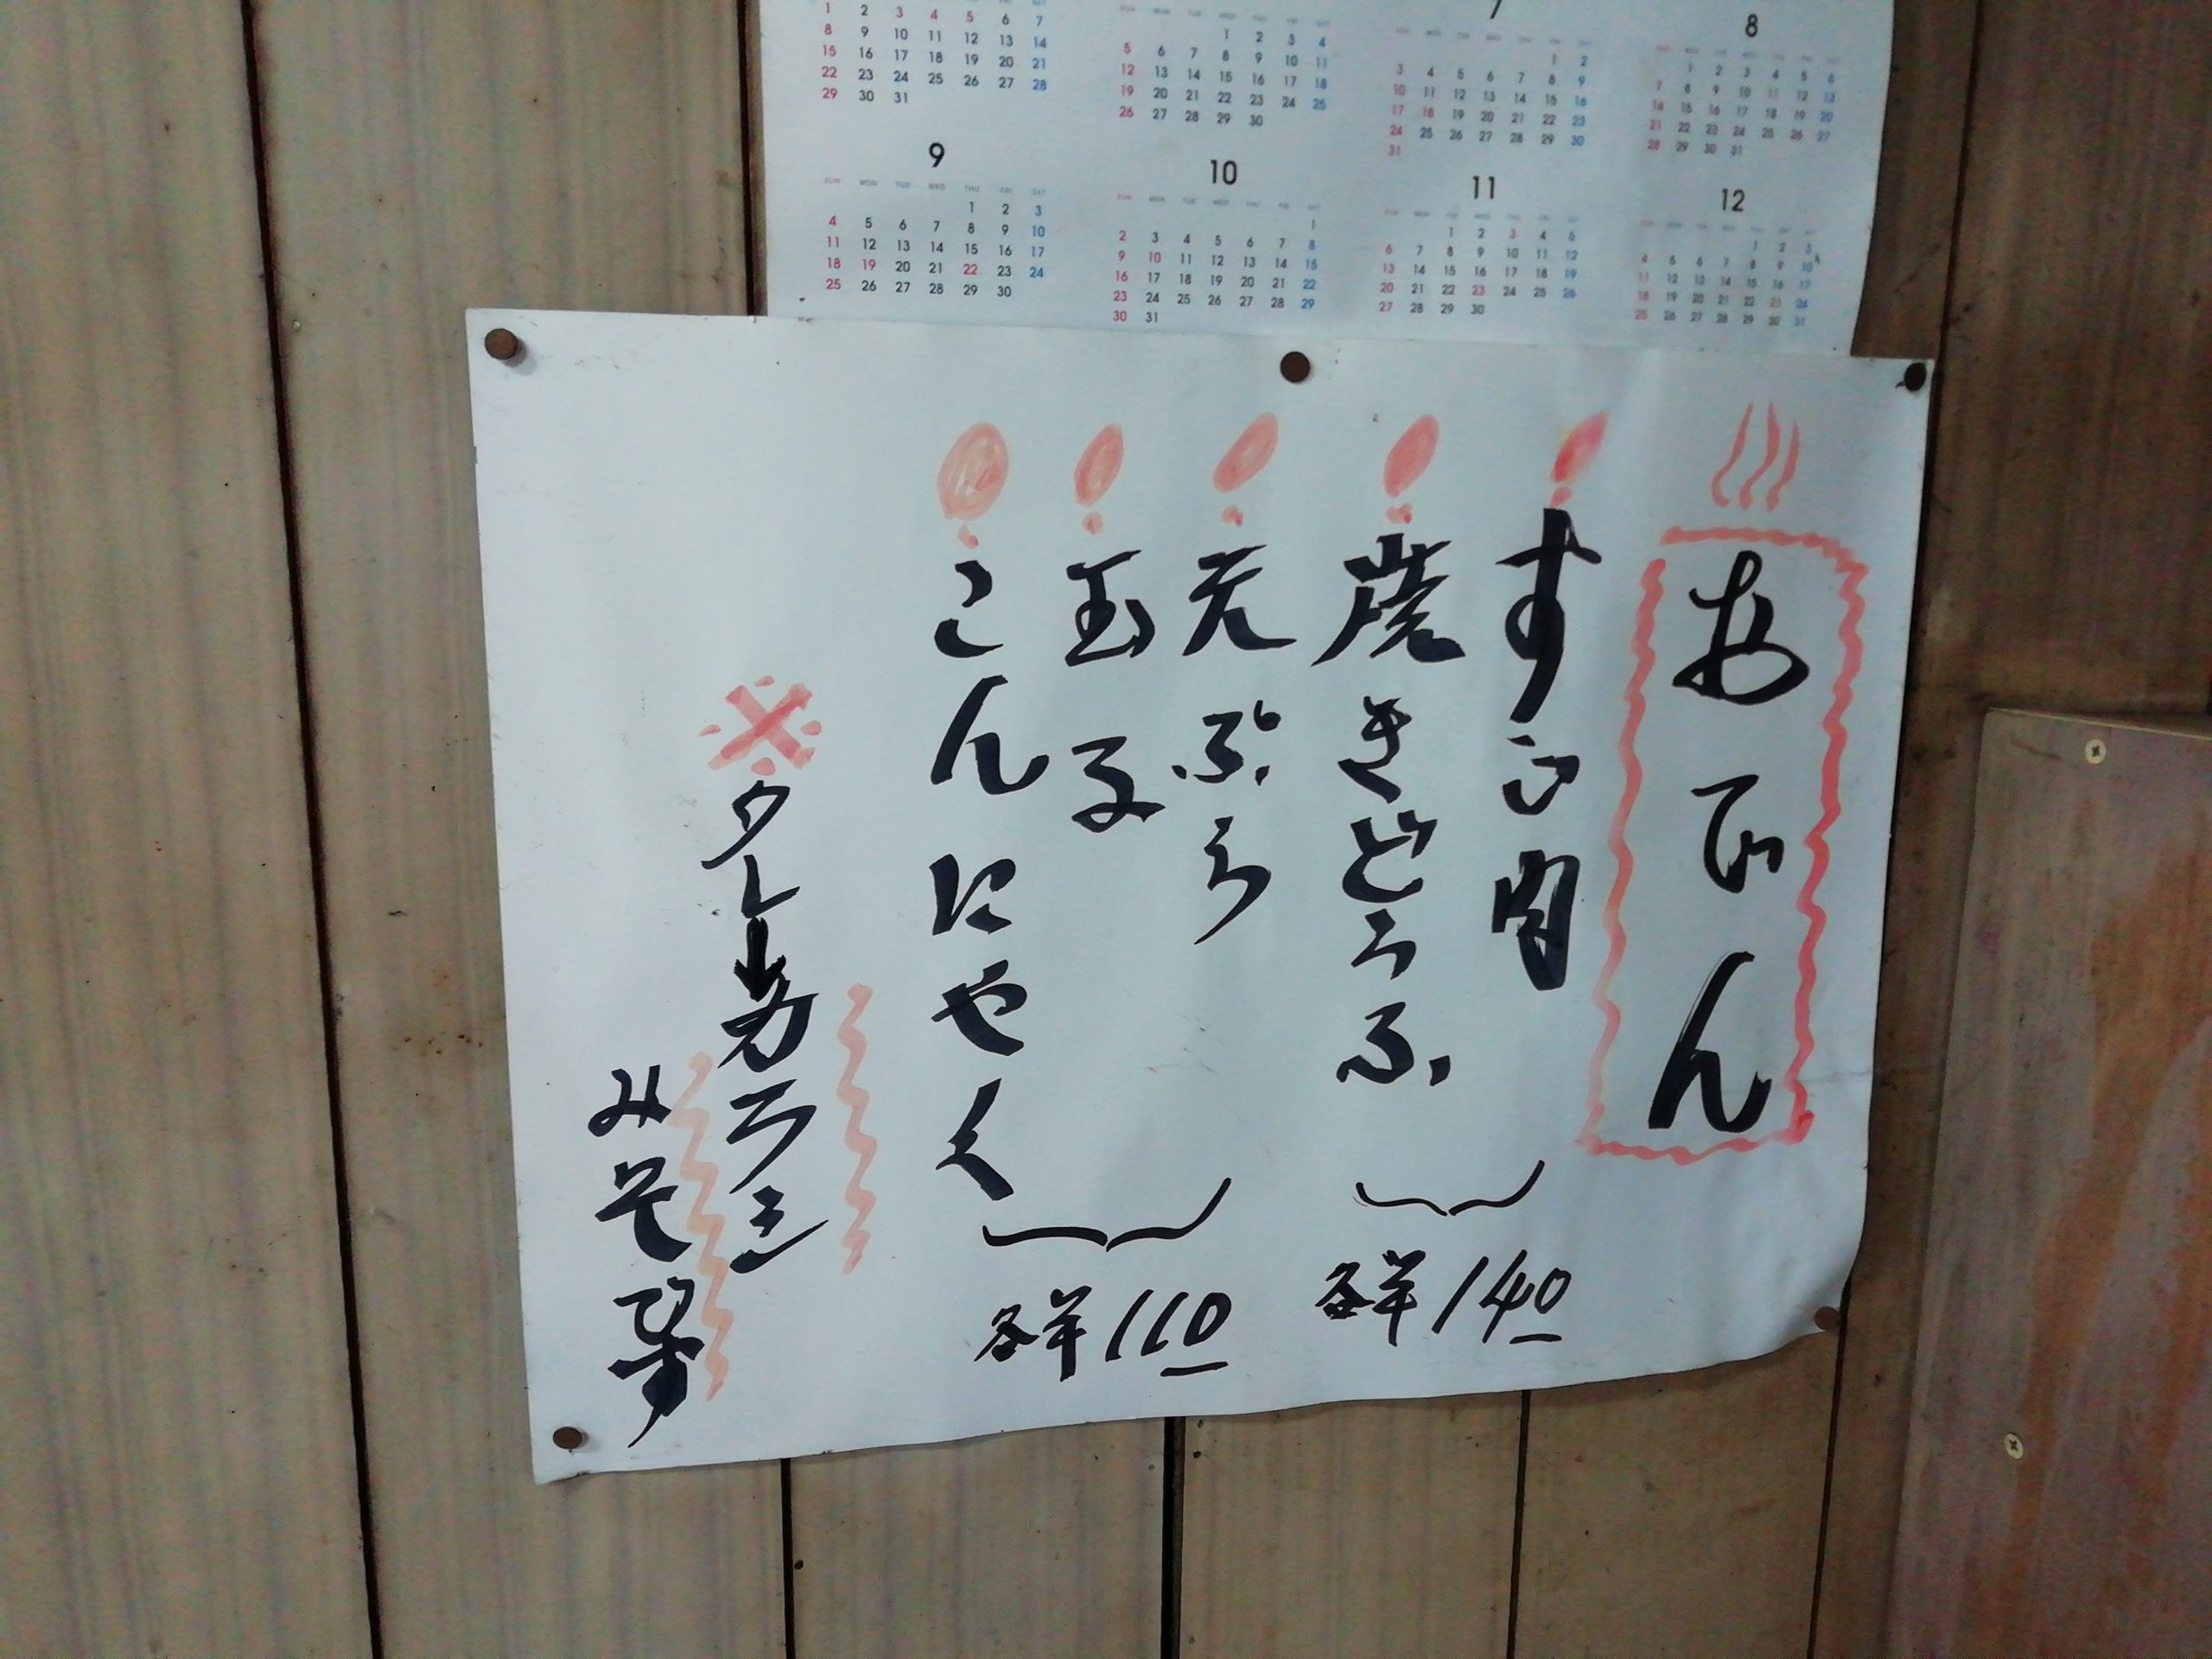 1 2 3 4 5 6 7
8 9 10 11 12 13 14
15 16 17 18 19 20 21
22 23 24 25 26 27 28
29 30 31
SUN MON TUE WED THU FRI SAT
1 2 3 4
5 6 7 8 9 10 11
12 13 14 15 16 17 18
19 20 21 22 23 24 25
26 27 28 29 30
7
SUN MON TUE WED THU FRI SAT
1 2
3 4 5 6 7 8 9
10 11 12 13 14 15 16
17 18 19 20 21 22 23
24 25 26 27 28 29 30
31
8
SUN MON TUE WED THU FRI SAT
1 2 3 4 5 6
7 8 9 10 11 12 13
14 15 16 17 18 19 20
21 22 23 24 25 26 27
28 29 30 31
9
SUN MON TUE WED THU FRI SAT
1 2 3
4 5 6 7 8 9 10
11 12 13 14 15 16 17
18 19 20 21 22 23 24
25 26 27 28 29 30
10
SUN MON TUE WED THU FRI SAT
1
2 3 4 5 6 7 8
9 10 11 12 13 14 15
16 17 18 19 20 21 22
23 24 25 26 27 28 29
30 31
11
SUN MON TUE WED THU FRI SAT
1 2 3 4 5
6 7 8 9 10 11 12
13 14 15 16 17 18 19
20 21 22 23 24 25 26
27 28 29 30
12
SUN MON TUE WED THU FRI SAT
1 2 3
4 5 6 7 8 9 10
11 12 13 14 15 16 17
18 19 20 21 22 23 24
25 26 27 28 29 30 31
おでん
すじ肉
焼きどうふ
各¥140
天ぷら
玉子
こんにやく
各¥110
※タレ→カラシ
みそです